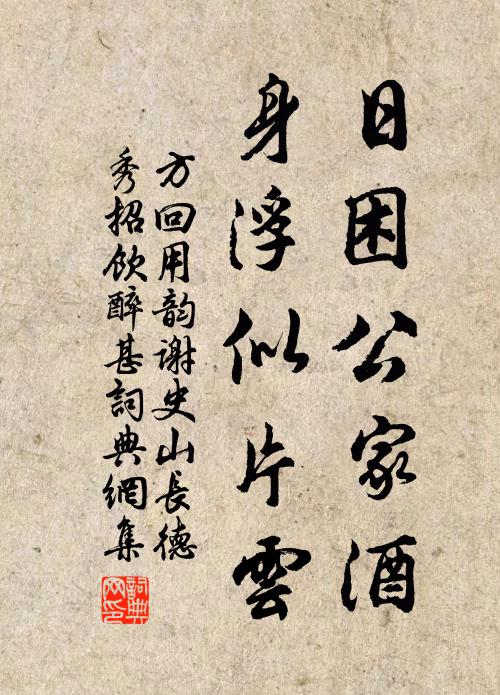 日困公家酒
身浮似片雲
方回用韵謝史山長德
秀招飲醉甚詞典網集
詞典
网印